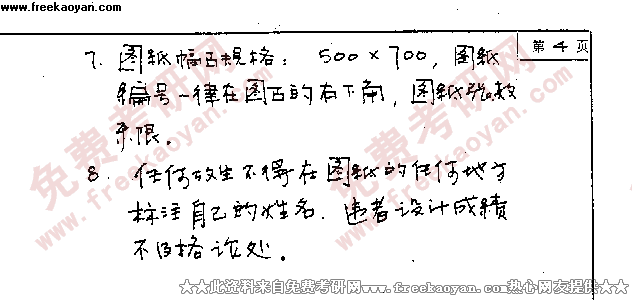 www.freekaoyan.com
第 4 页
7. 图纸幅面规格：500×700，图纸
编号一律在图面的右下角，图纸张数
不限。
8. 任何考生不得在图纸的任何地方
标注自己的姓名，违者设计成绩
不及格论处。
免费考研网
www.freekaoyan.com
免费考研网
www.freekaoyan.com
★★此资料来自免费考研网www.freekaoyan.com热心网友提供★★